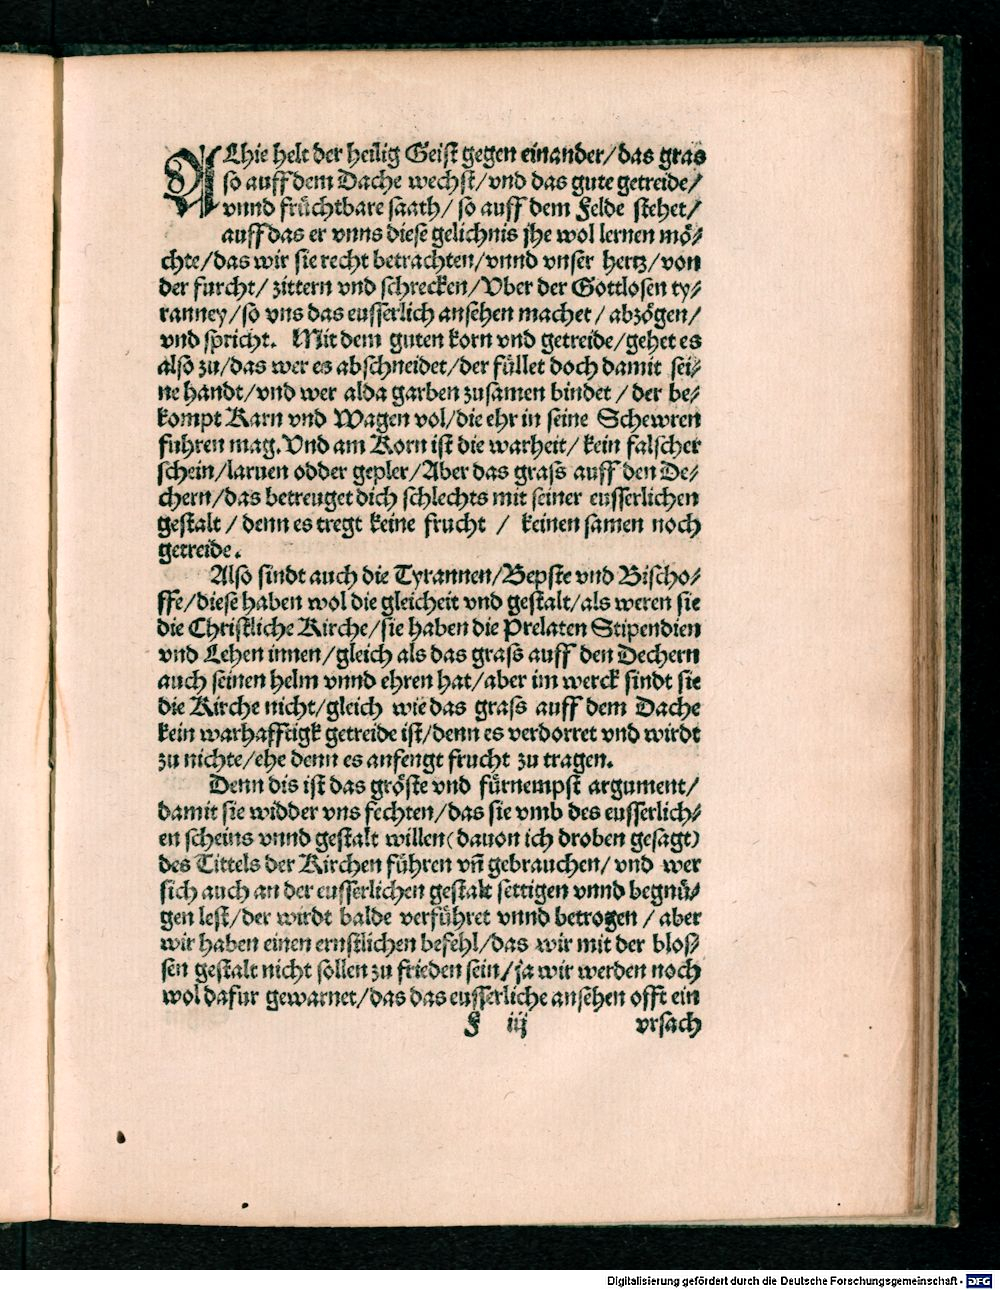 ALhie helt der heilig Geist gegen einander/das gras
so auff dem Dache wechst/vnd das gute getreide/
vnnd früchtbare saath/ so auff dem Felde stehet/
auff das er vnns diese gelichnis jhe wol lernen mö-
chte/das wir sie recht betrachten/vnnd vnser hertz/von
der furcht/ zittern vnd schrecken/Vber der Gottlosen ty-
ranney/so vns das eusserlich ansehen machet/ abzögen/
vnd spricht. Mit dem guten korn vnd getreide/gehet es
also zu/das wer es abschneidet/der füllet doch damit sei-
ne handt/vnd wer alda garben zusamen bindet / der be-
kompt Karn vnd Wagen vol/die ehr in seine Schewren
fuhren mag. Vnd am Korn ist die warheit/ kein falscher
schein/laruen odder gepler/Aber das grass auff den De-
chern/das betreuget dich schlechts mit seiner eusserlichen
gestalt / denn es tregt keine frucht / keinen samen noch
getreide.
Also sindt auch die Tyrannen/Bepste vnd Bischo-
ffe/diese haben wol die gleicheit vnd gestalt/als weren sie
die Christliche Kirche/sie haben die Prelaten Stipendien
vnd Lehen innen/gleich als das grass auff den Dechern
auch seinen helm vnnd ehren hat/aber im werck sindt sie
die Kirche nicht/gleich wie das grass auff dem Dache
kein warhafftigk getreide ist/denn es verdorret vnd wirdt
zu nichte/ehe denn es anfengt frucht zu tragen.
Denn dis ist das gröste vnd fürnempst argument/
damit sie widder vns fechten/das sie vmb des eusserlich-
en scheins vnnd gestalt willen(dauon ich droben gesagt)
des Tittels der Kirchen führen vñ gebrauchen/ vnd wer
sich auch an der eusserlichen gestalt settigen vnnd begnü-
gen lest/der wirdt balde verführet vnnd betrogen / aber
wir haben einen ernstlichen befehl/das wir mit der blos-
sen gestalt nicht sollen zu frieden sein/ja wir werden noch
wol dafur gewarnet/das das eusserliche ansehen offt ein
F iij vrsach
Digitalisierung gefördert durch die Deutsche Forschungsgemeinschaft - DFG